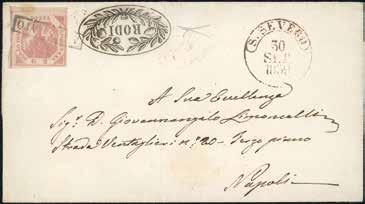 RODI
S. SEVERO
30
SET
A Sua Eccellenza
Sig.r D. Giovannangelo Limoncelli
Strada Ventaglieri n.° 20 - Terzo piano
Napoli